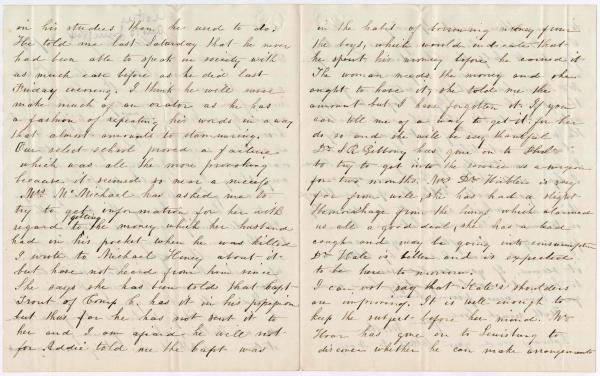 in his studies than he used to do.
He told me last Saturday that he never
had been able to speak in society with
as much ease before as he did last
Friday evening. I think he will never
make much of an orator as he has
a fashion of repeating his words in a way
that almost amounts to stammering.
Our select school proved a failure
which was all the more provoking
because it seemed so near a success
Mrs McMichael has asked me to
try to get information for her with
regard to getting the money which her husband
had in his pocket when he was killed
I wrote to Michael Henry about it
but have not heard from him since
She says she has been told that Capt
Trout of Comp C. has it in his possession
but thus far he has not sent it to
her and I am afraid he will not
for Addie told me the Capt was
in the habit of borrowing money from
the boys, which would indicate that
he spent his money before he earned it
The woman needs the money and she
ought to have it, she told me the
amount but I have forgotten it. If you
can tell me of a way to get it for her
do so and she will be very thankful
Dr. I. R. has gone on to
to try to get into the service as a surgeon
for two months. Mrs Dr is very
far from well she has had a slight
Hemorrhage from the lungs which alarmed
us all a good deal, she has a bad
cough and may be going into consumption
Dr is better and is expected
to be here to morrow.
I can not say that Kate's shoulders
are improving. It is well enough to
keep the subject before her mind. Mr
Hoar has gone on to Lewisburg to
discover whether he can make arrangements